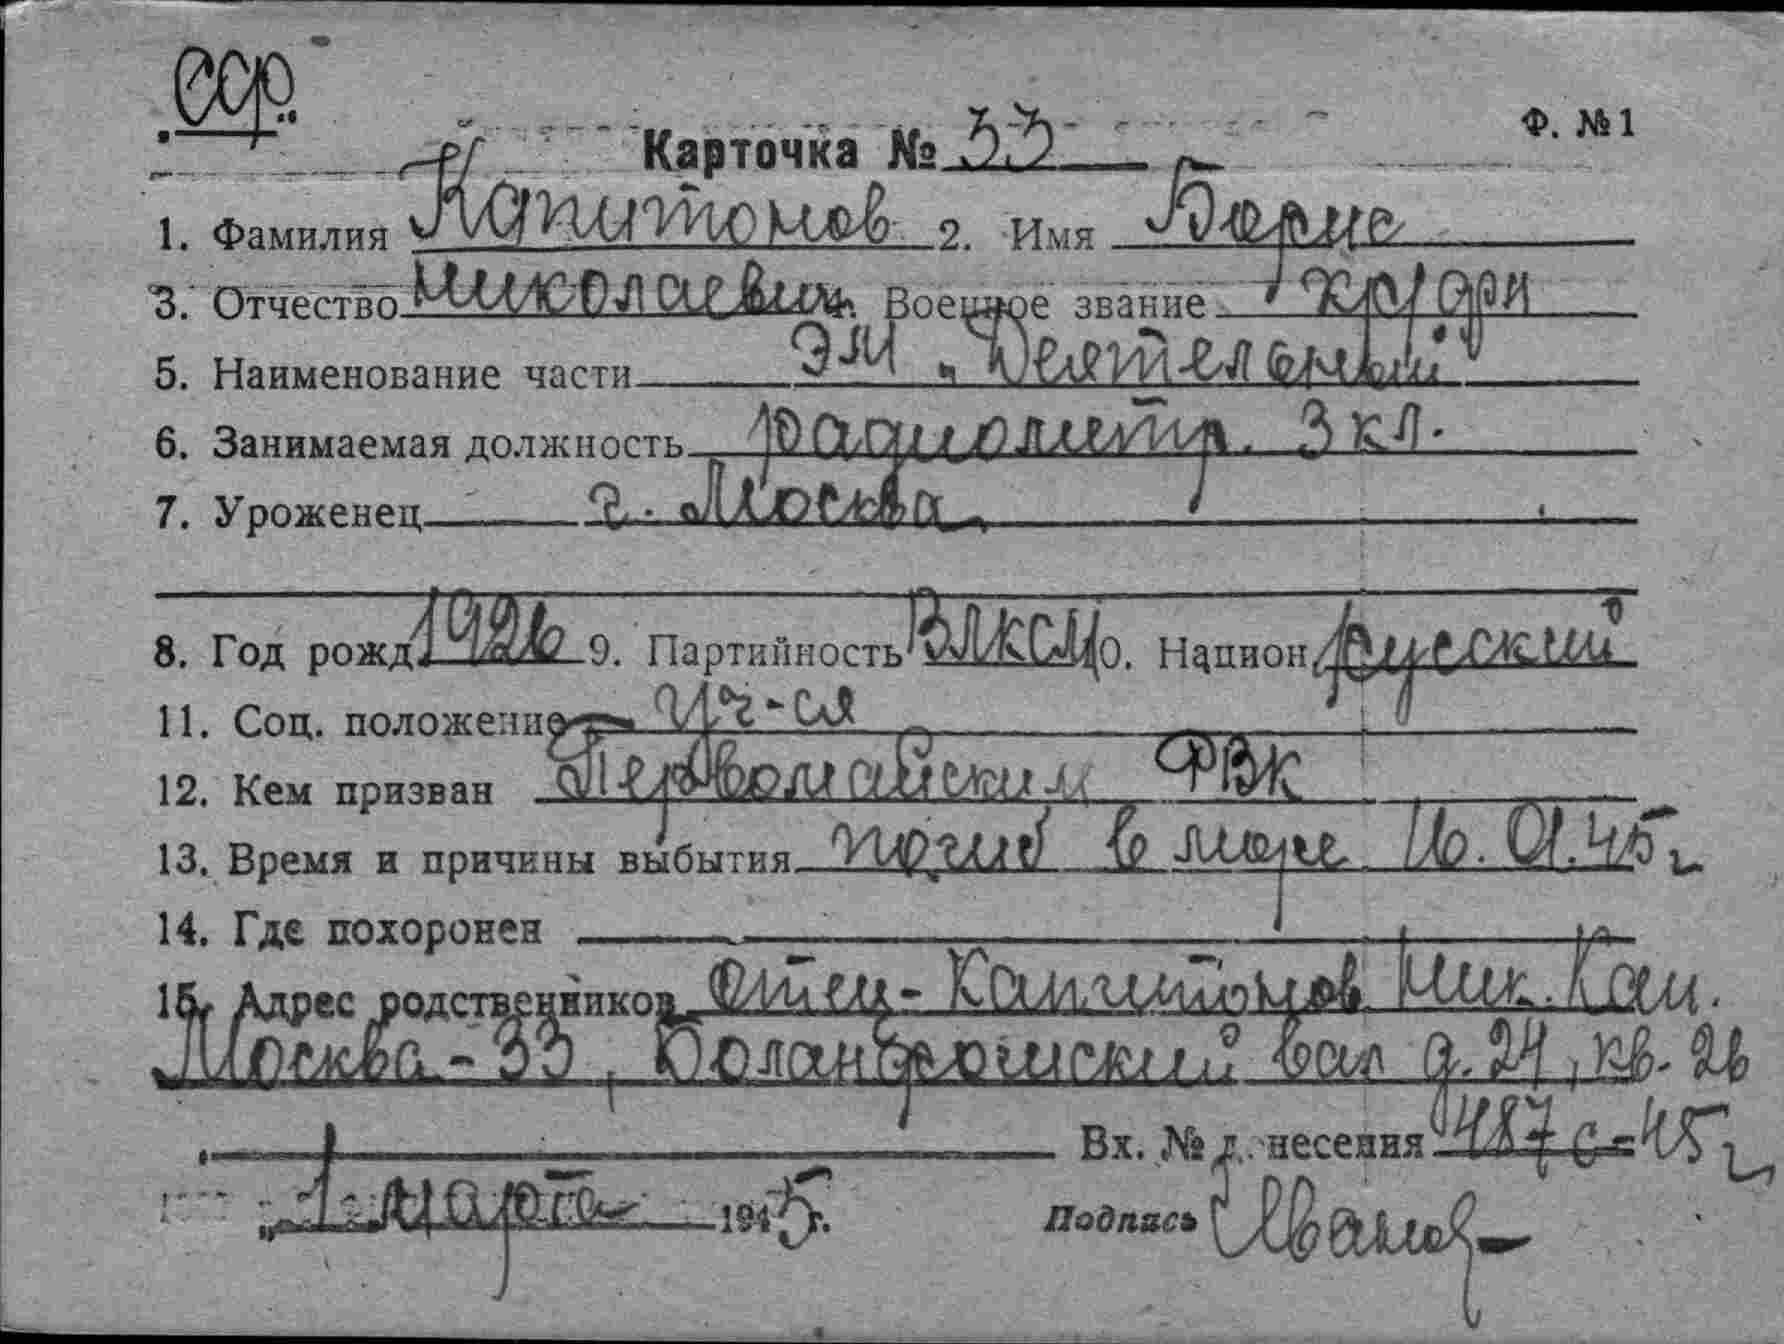 ССР.
Ф. №1
Карточка № 33
1. Фамилия Капитонов 2. Имя Борис
3. Отчество Николаевич. Военное звание
5. Наименование части ЭМ „Деятельный"
6. Занимаемая должность радиометр. 3 кл.
7. Уроженец г. Москва
8. Год рожд. 1926 9. Партийность ВЛКСМ 10. Национ. русский
11. Соц. положение уч-ся
12. Кем призван Первомайским РВК
13. Время и причины выбытия погиб в море 16.01.45 г
14. Где похоронен
15. Адрес родственников Отец - Капитонов Ник.
Москва-33, вал д. 24, кв. 26
Вх. № донесения 487с-45 г
„1" марта 1945 г. Подпись Иванов